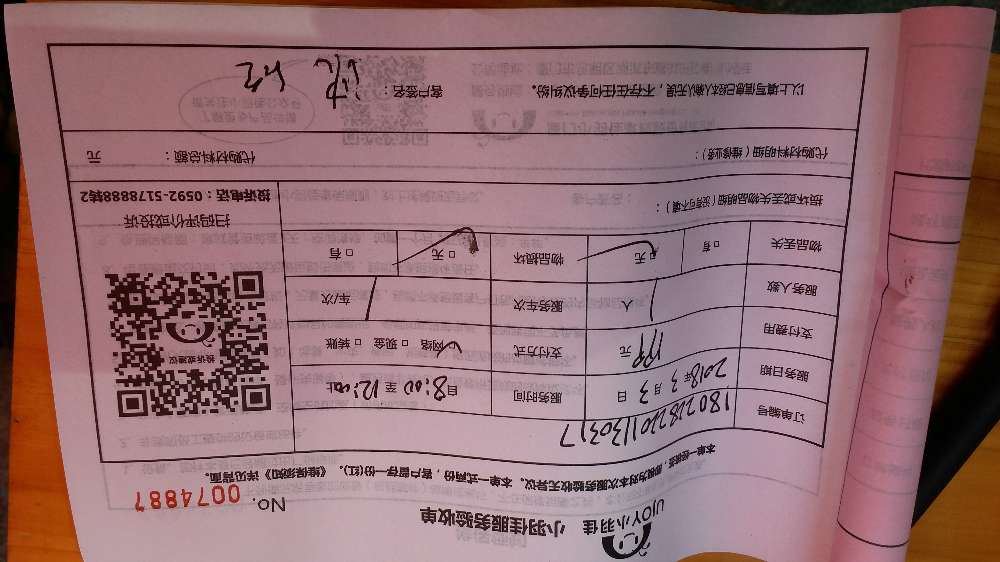 UJOY小羽佳 小羽佳服务验收单
No. 0074887
本单一经签署，即视为对本次服务验收无异议。本单一式两份，客户留存一份(红)。《维保须知》详见背面。
订单编号 1802282201130317
服务日期 2018年3月3日 服务时间 自8:00至12:00止
支付费用 199元 支付方式 □网络 □现金 □转账
服务人数 1人 服务车次 1车次
物品丢失 □有 □无 物品损坏 □无 □有
投诉或建议
扫码评价或投诉
投诉电话：0592-5178888转2
损坏或丢失物品明细（没有可不填）：
代购材料明细（维修业务）： 代购材料总额： 元
以上填写信息已经本人确认无误，不存在任何争议纠纷。 客户签名：